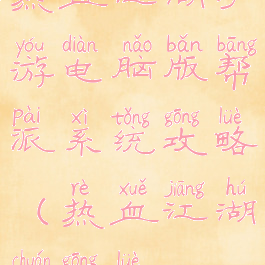 yóu diàn nǎo bǎn bāng
游电脑版帮
pài xì tǒng gōng lüè
派系统攻略
rè xuě jiāng hú
（热血江湖
chuán gōng lüè